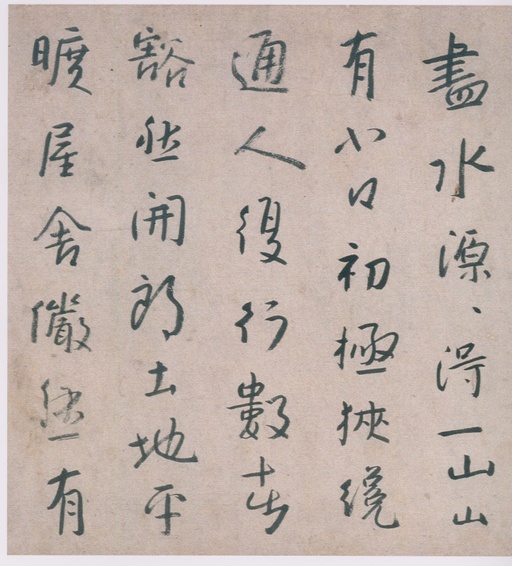 盡水源、得一山山
有小口初極狹纔
通人復行數十步
豁然開朗土地平
曠屋舍儼然有